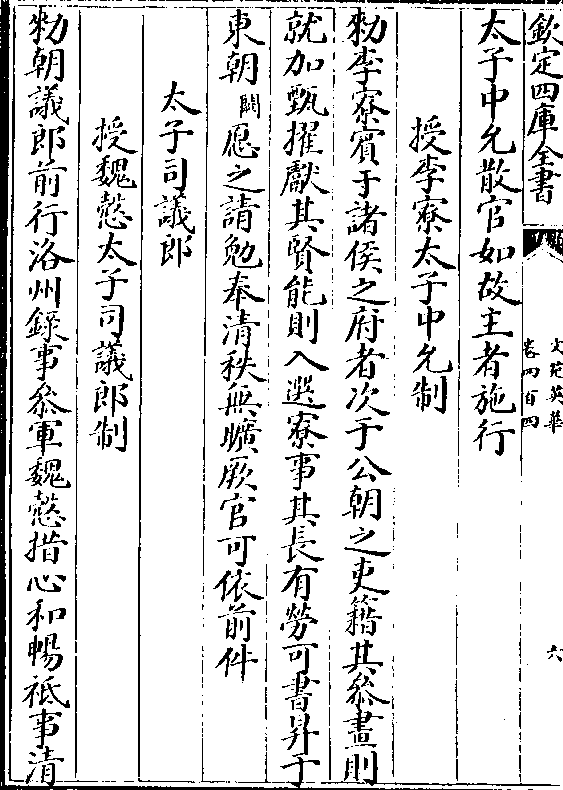 欽定四庫全書
文苑英華
卷四百四
六
太子中允散官如故主者施行
授李寮太子中允制
勑李寮賓于諸侯之府者次于公朝之吏籍其叅畫則
就加甄擢獻其賢能則入選寮事其長有勞可書昇于
東朝闕愿之請勉奉清秩無曠厥官可依前件
太子司議郎
授魏慤太子司議郎制
勑朝議郎前行洛州錄事叅軍魏慤措心和暢祗事清